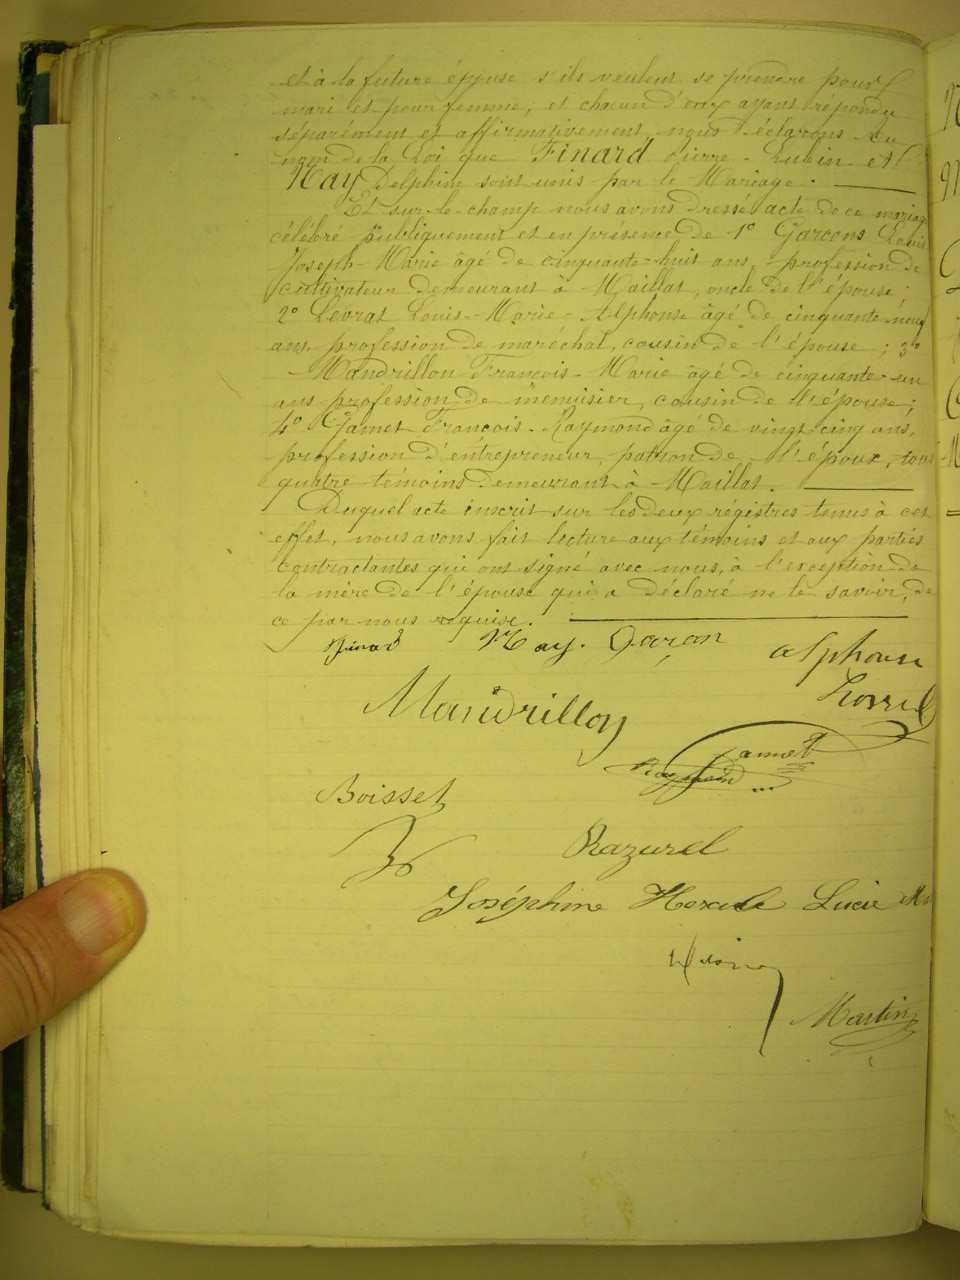 et à la future épouse s'ils veulent se prendre pour
mari et pour femme; et chacun d'eux ayant répondu
séparément et affirmativement, nous déclarons au
nom de la Loi que Finard Pierre-Lubin et
Nay Delphine sont unis par le Mariage.
Et sur-le-champ nous avons dressé acte de ce mariage
célébré publiquement et en présence de 1° Garcons Louis
Joseph-Marie âgé de cinquante-huit ans, profession de
cultivateur demeurant à Maillat, oncle de l'épouse;
2° Levrat Louis-Marie-Alphonse âgé de cinquante-neuf
ans, profession de maréchal, cousin de l'épouse; 3°
Mandrillon François-Marie âgé de cinquante-un
ans profession de menuisier, cousin de l'épouse;
4° Gamet François-Raymond âgé de vingt cinq ans,
profession d'entrepreneur, patron de l'époux, tous
quatre témoins demeurant à Maillat.
Duquel acte inscrit sur les deux régistres tenus à cet
effet, nous avons fait lecture aux témoins et aux parties
contractantes qui ont signé avec nous, à l'exception de
la mère de l'épouse qui a déclaré ne le savoir, de
ce par nous requise.
Finard Nay. Garçon Alphonse
Levrat
Mandrillon
Gamet
Raymond
Boisset
Razurel
Joséphine Lucie
Martin